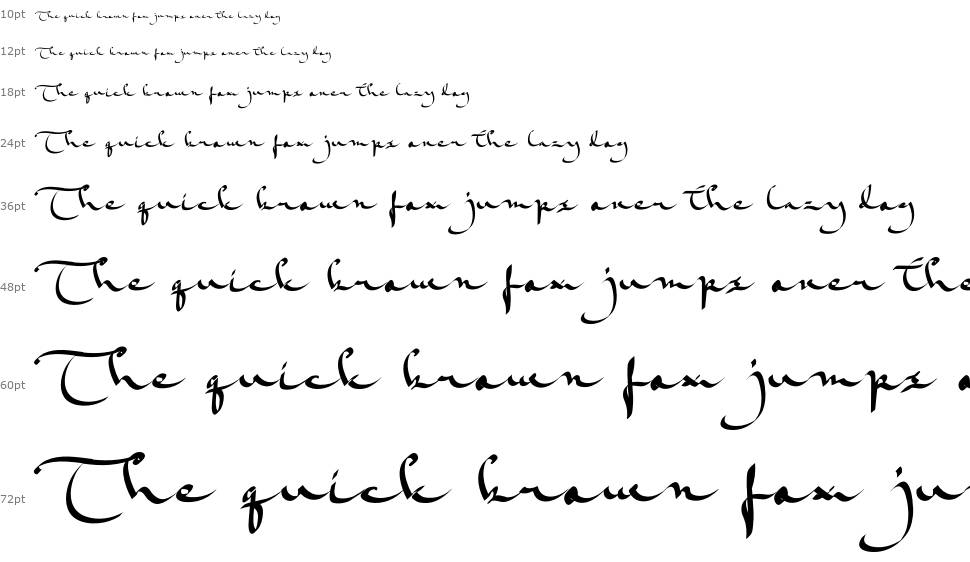 10pt The quick brown fox jumps over the lazy dog
12pt The quick brown fox jumps over the lazy dog
18pt The quick brown fox jumps over the lazy dog
24pt The quick brown fox jumps over the lazy dog
36pt The quick brown fox jumps over the lazy dog
48pt The quick brown fox jumps over the
60pt The quick brown fox jumps o
72pt The quick brown fox ju